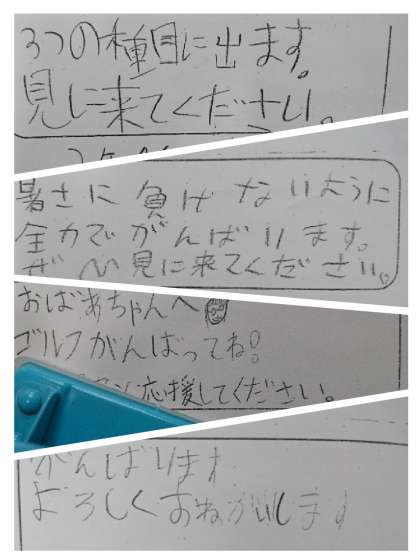 3つの種目に出ます。
見に来てください。
暑さに負けないように
全力でがんばります。
ぜひ見に来てください。
おばあちゃんへ
ゴルフがんばってね!
応援してください。
がんばります
よろしくおねがいします